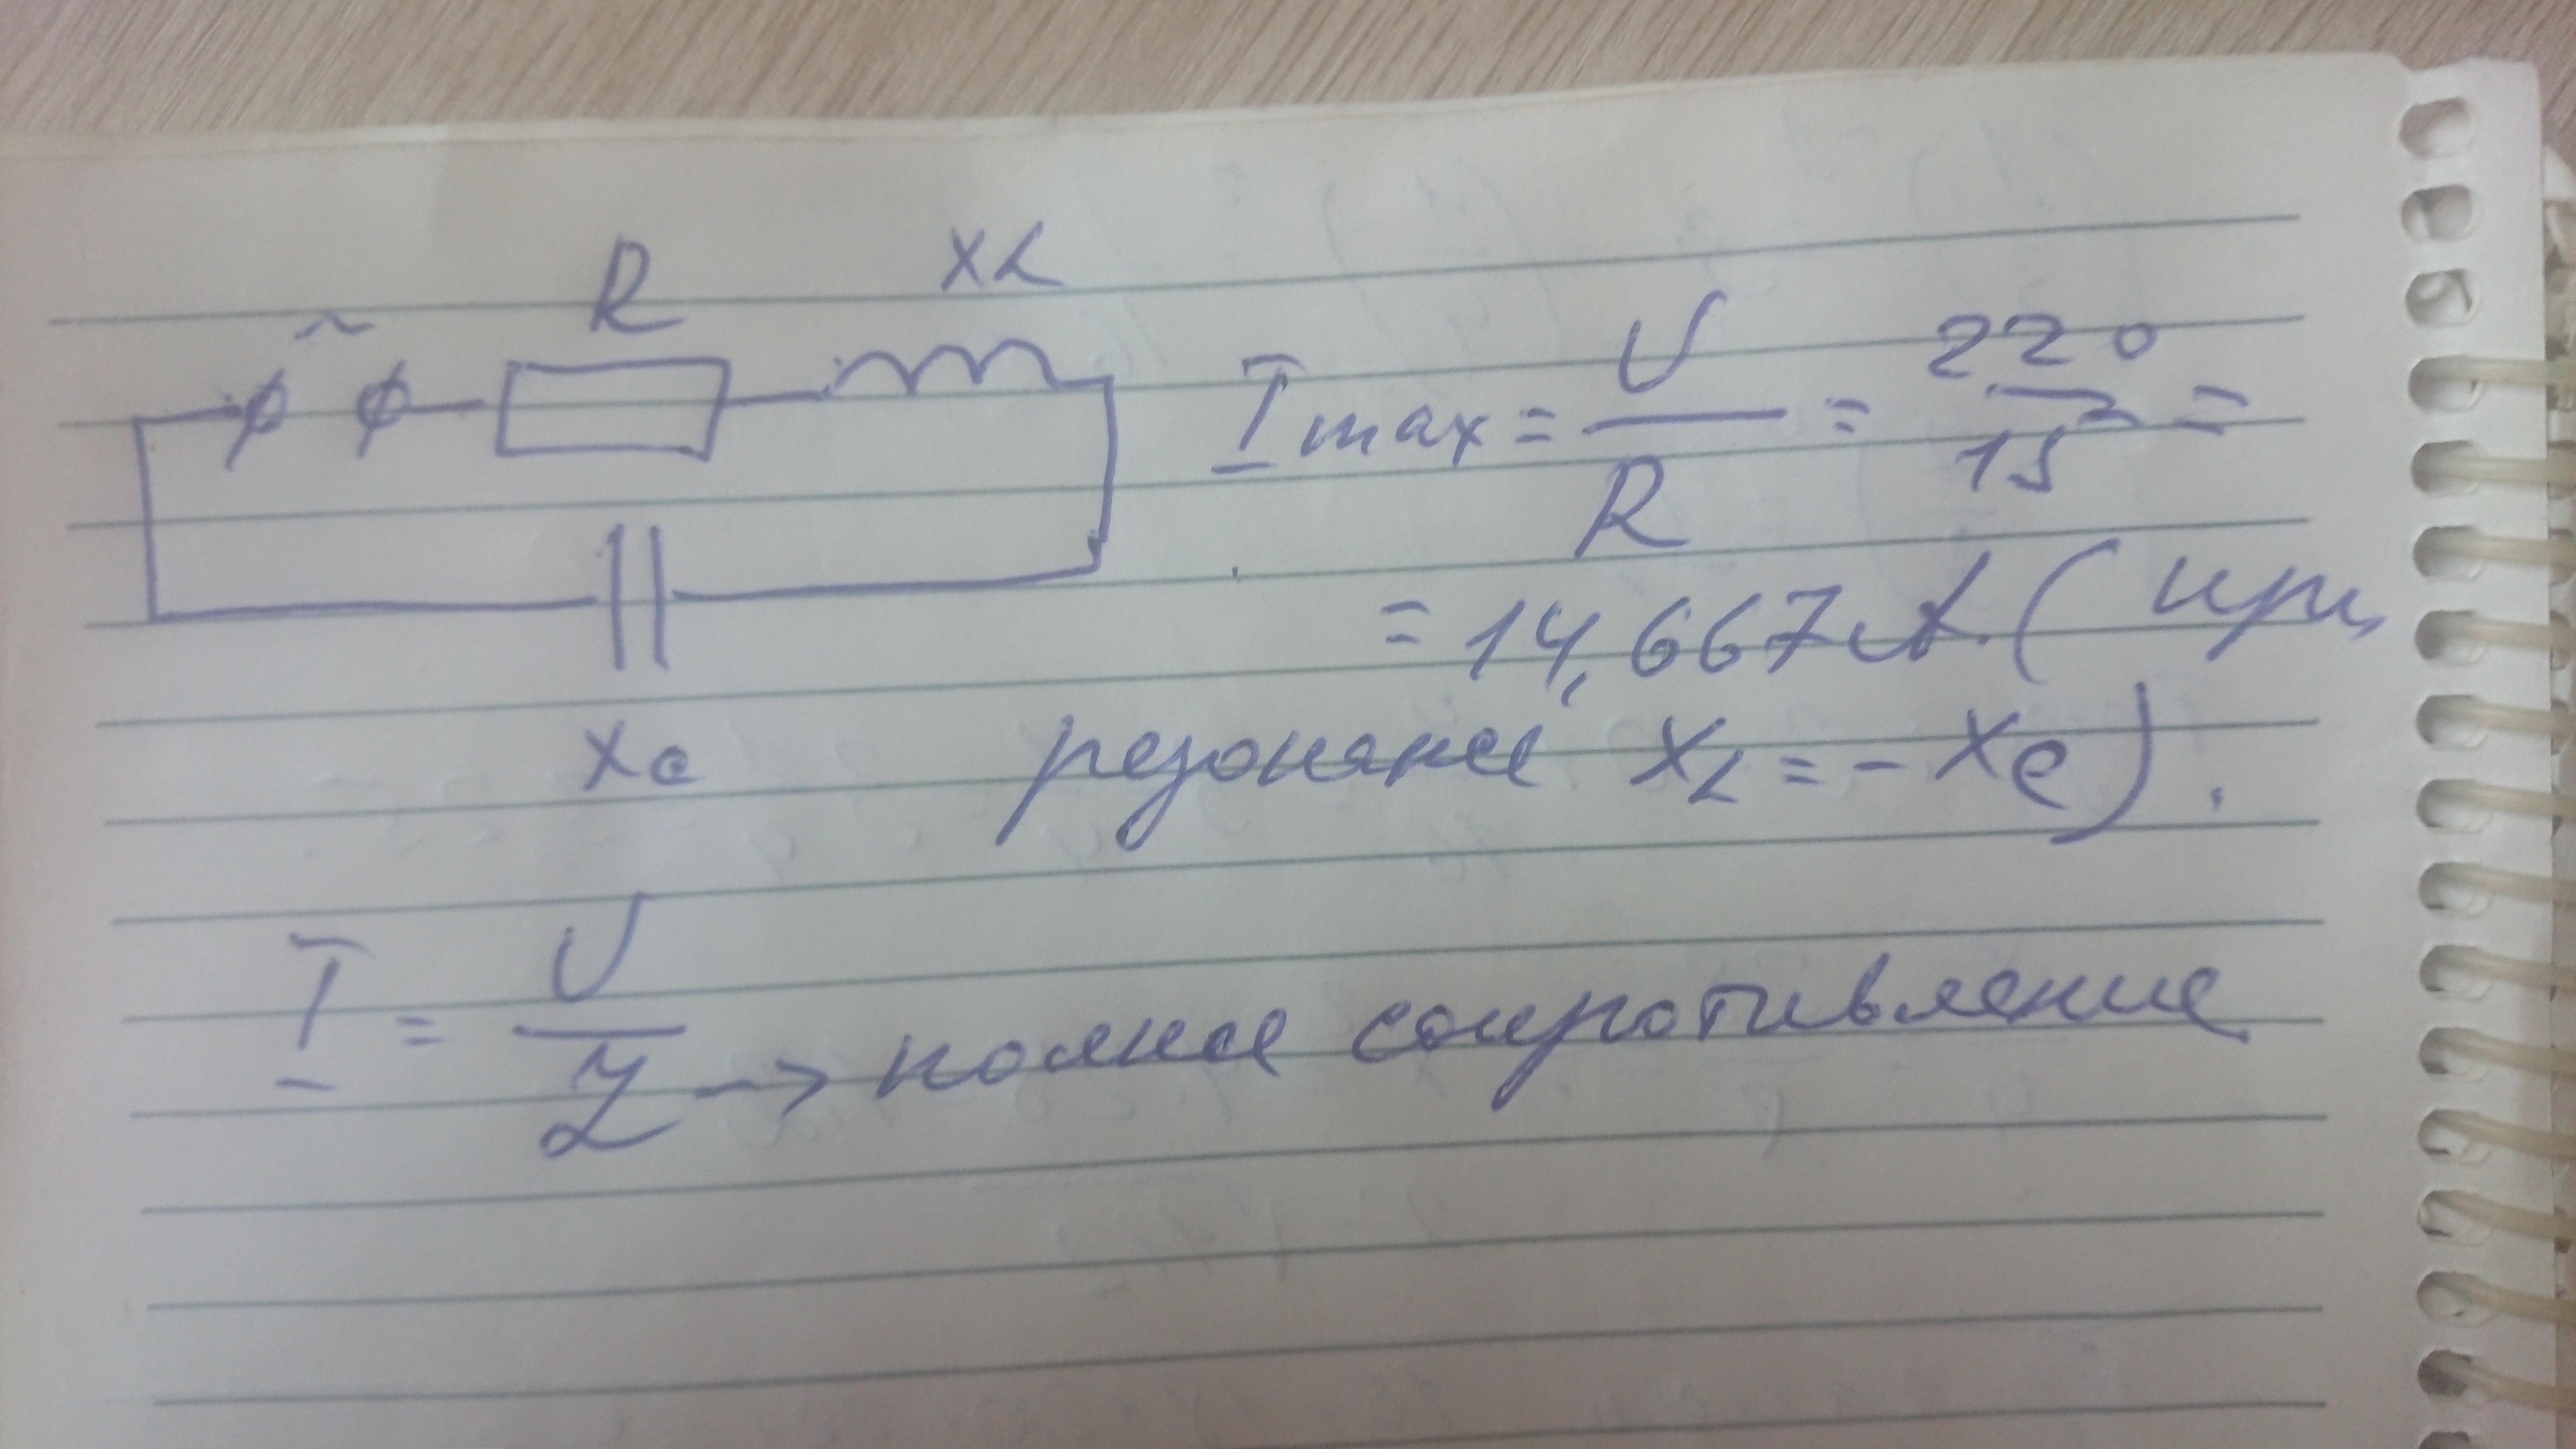 R XL
~
I max = U / R = 220 / 15 =
= 14,667 А. (при
Xc
резонансе XL = - Xc).
I = U / Z -> полное сопротивление